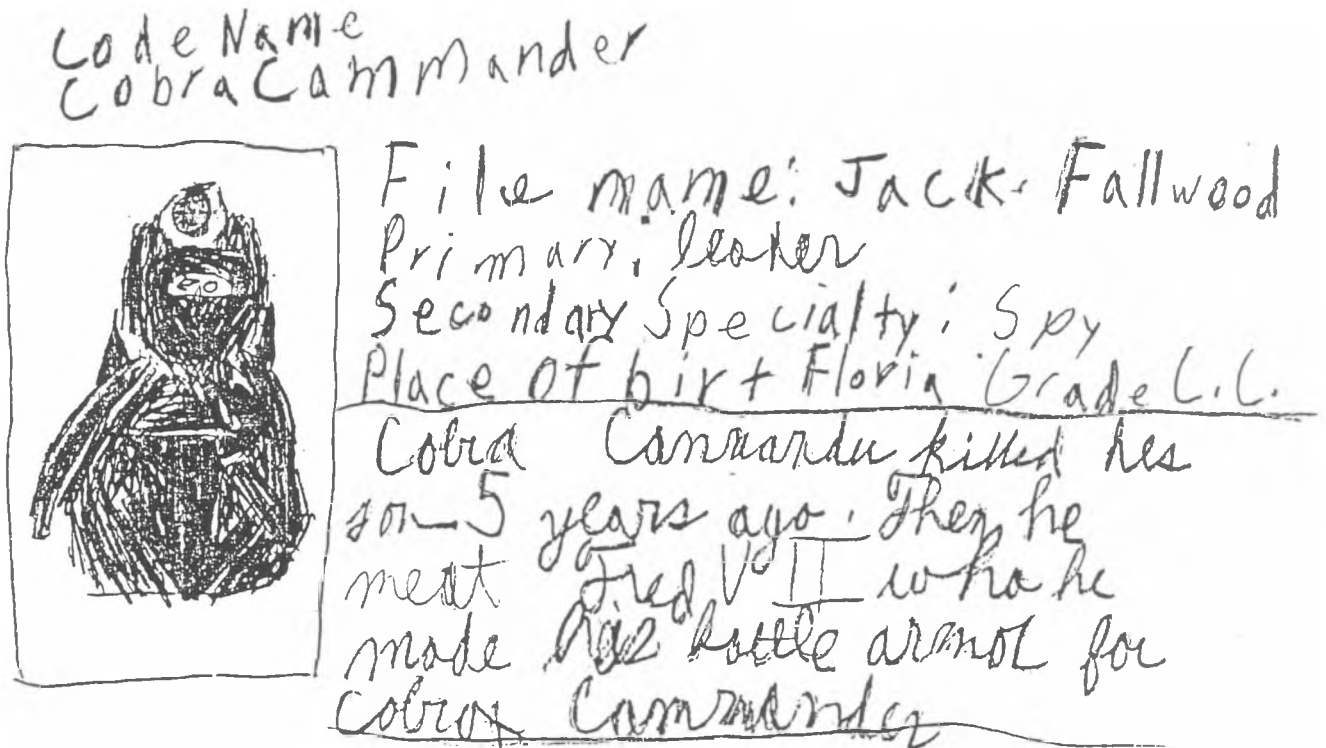 Code Name
Cobra Cammander
File name: Jack Fallwood
Primary, leader
Secondary Specialty: Spy
Place of birt Floria Grade C.C.
Cobra Commander killed hes
son 5 years ago. Then he
meat Fred VII who he
made his battle armor for
Cobra Commander